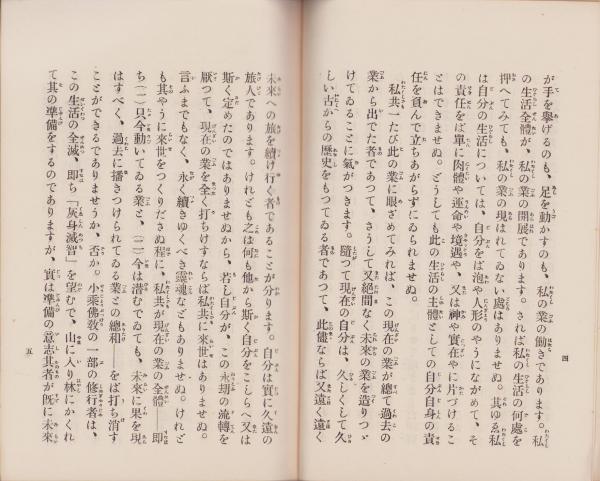 四
が手を擧げるのも、足を動かすのも、私の業の働きであります。私
の生活全體が、私の業の開展であります。されば私の生活の何處を
押へてみても、私の業の現はれてゐない處はありませぬ。其ゆゑ私
は自分の生活については、自分をば泡や人形のやうにながめて、そ
の責任をば單に肉體や運命や境遇や、又は神や實在やに片づけるこ
とはできませぬ。どうしても此の生活の主體としての自分自身の責
任を負んで立ちあがらずにゐられませぬ。
私共一たび此の業に眼ざめてみれば、この現在の業が總て過去の
業から出でた者であつて、さうして又絶間なく未來の業を造りつゞ
けてゐることに氣がつきます。隨つて現在の自分は、久しくして久
しい古からの歷史をもつてゐる者であつて、此儘ならば又遠く遠く
未來への旅を續け行く者であることが分ります。自分は實に久遠の
旅人であります。けれども之は何も他から斯く自分をこしらへ又は
斯く定めたのではありませぬから、若し自分が、この永劫の流轉を
厭つて、現在の業を全く打ちけすならば私共に來世はありませぬ。
言ふまでもなく、永く續きゆくべき靈魂などもありませぬ。けれど
も其やうに來世をつくりださぬ程に、私共が現在の業の全體――即
ち(一)只今動いてゐる業と、(二)今は潜むでゐても、未來に果を現
はすべく、過去に播きつけられてゐる業との總和――をば打ち消す
ことができるでありませうか、否か。小乘佛敎の一部の修行者は、
この生活の全滅、即ち「灰身滅智」を望むで、山に入り林にかくれ
て其の準備をするのでありますが、實は準備の意志其者が既に未來
五